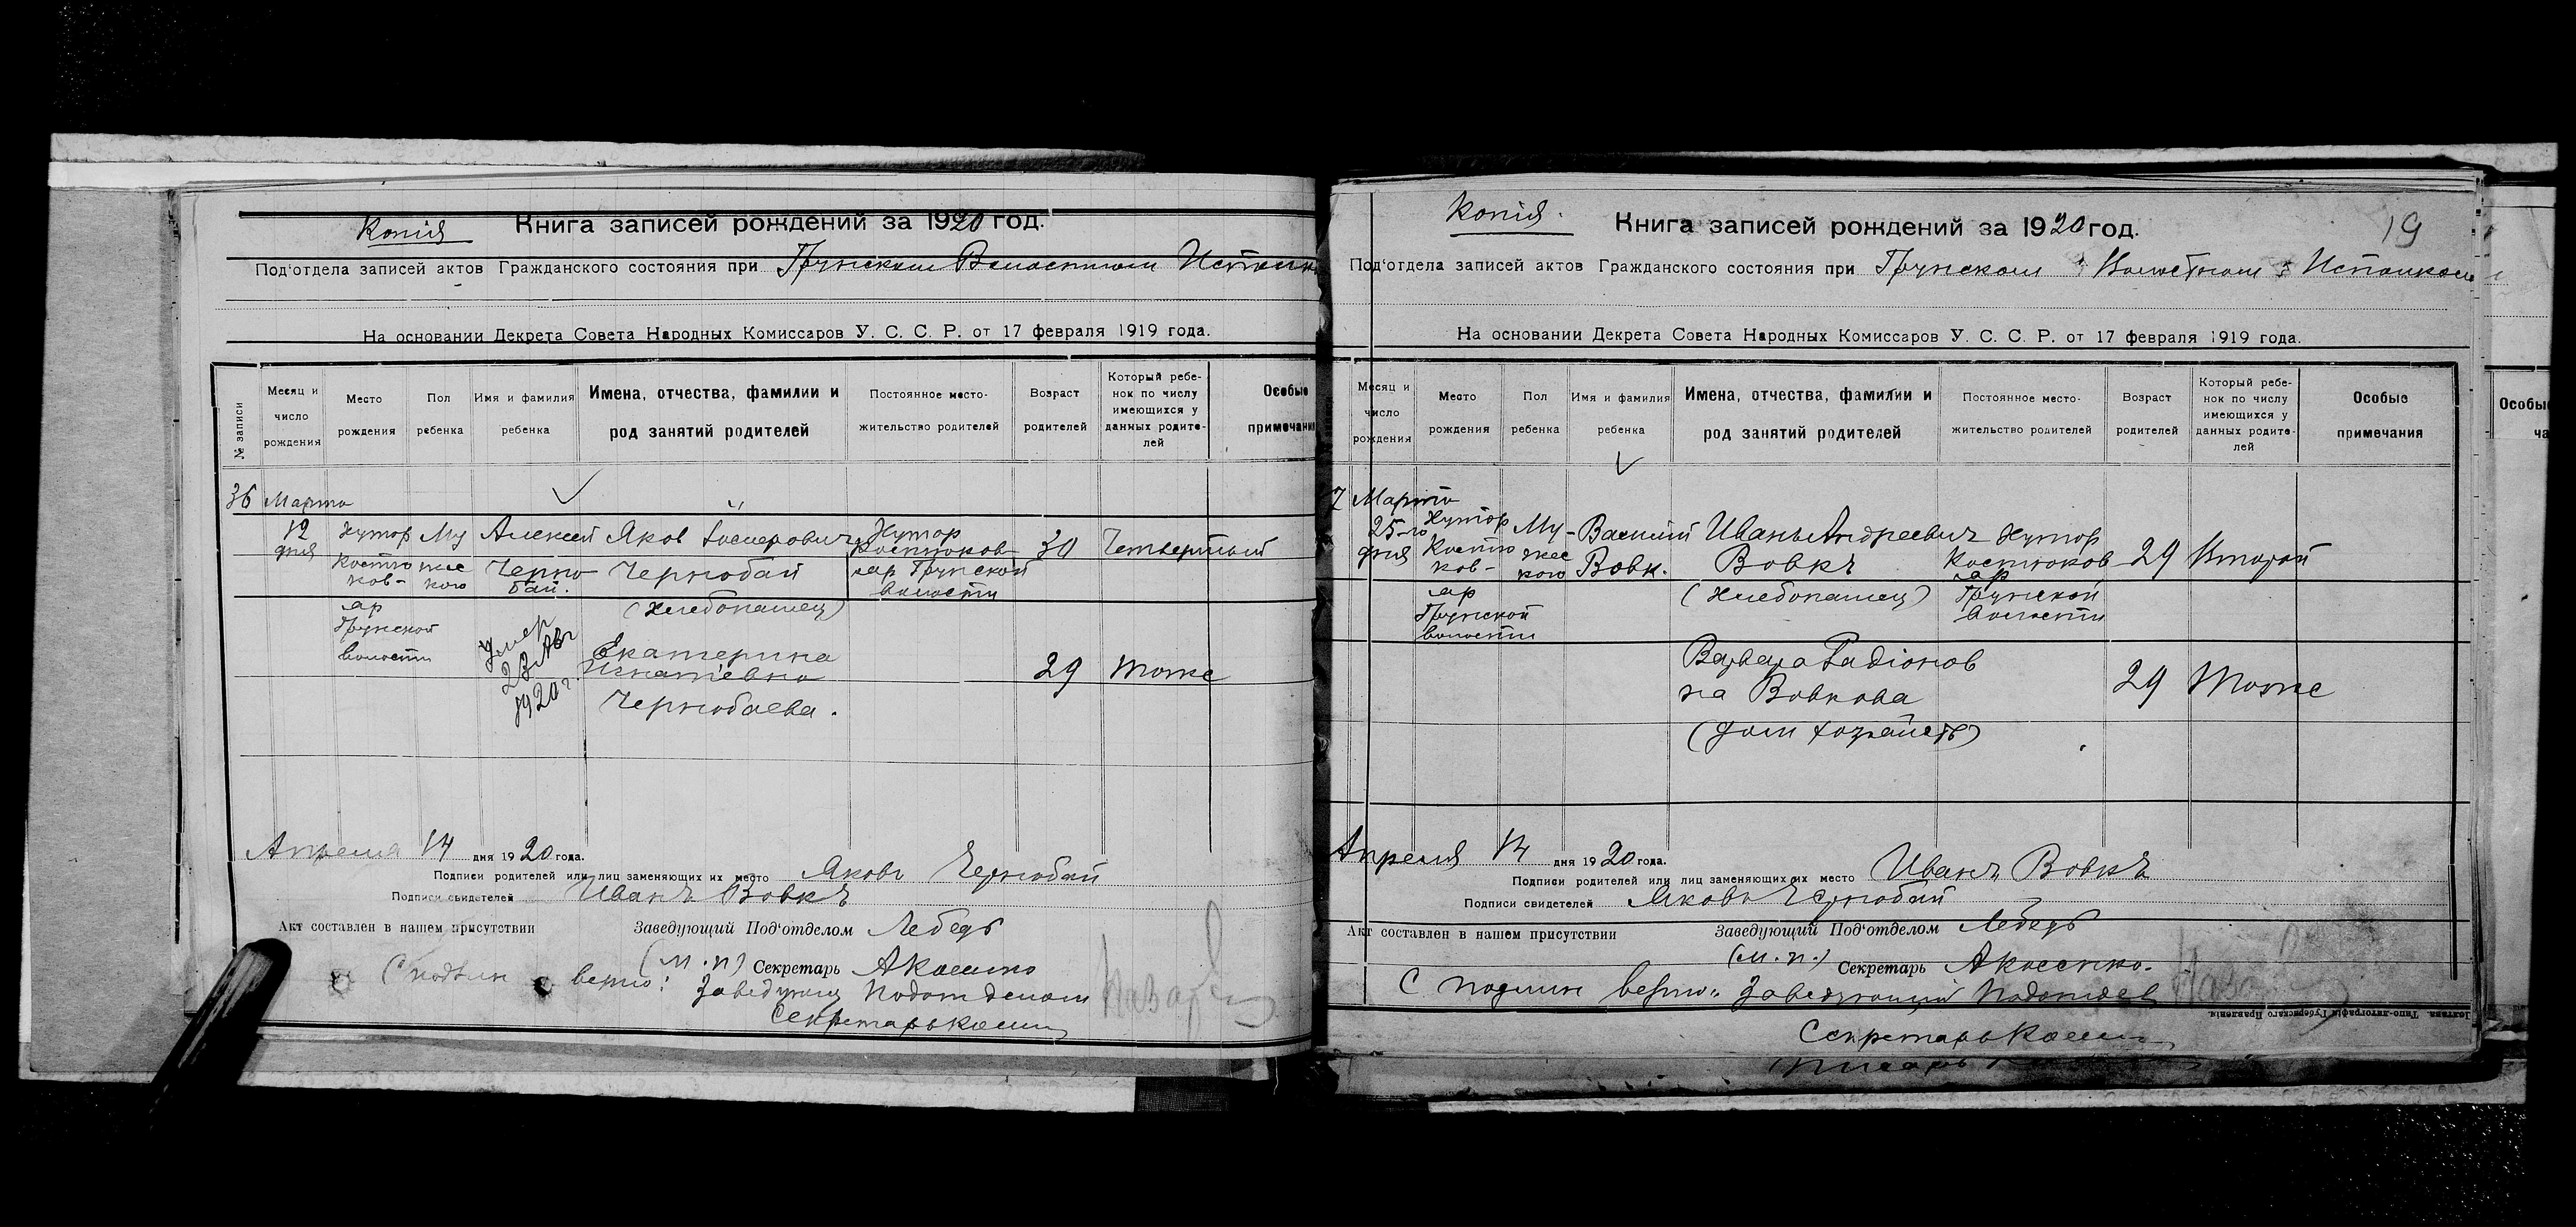 Копія
Книга записей рождений за 1920 год.
Под'отдела записей актов Гражданского состояния при Грунском Волостном Исполк
На основании Декрета Совета Народных Комиссаров У. С. С. Р. от 17 февраля 1919 года.
№ записи
Месяц и число рождения
Место рождения
Пол ребенка
Имя и фамилия ребенка
Имена, отчества, фамилии и род занятий родителей
Постоянное место-жительство родителей
Возраст родителей
Который ребе-нок по числу имеющихся у данных родите-лей
Особые примечани
36 Марта
12 дня
Хутор Костюков-
ар Грунской волости
Мужеского
Алексей Чернобай.
Умер 23 Авг 1920 г.
Яков
Чернобай
(хлебопашец)
Хутор Костюков-
ар Грунской волости
30
Четвертый
Екатерина
Игнатіевна
Чернобаева.
29
Тоже
Апреля 14 дня 1920 года.
Подписи родителей или лиц заменяющих их место Яковъ Чернобай
Подписи свидетелей Иванъ Вовкъ
Акт составлен в нашем присутствии Заведующий Под'отделом Лебедь
(м.п) Секретарь
С подлин верно: Заведующ Подотделом
Секретарь
Копія.
Книга записей рождений за 1920 год.
19
Под'отдела записей актов Гражданского состояния при Грунском Волостном Исполком
На основании Декрета Совета Народных Комиссаров У. С. С. Р. от 17 февраля 1919 года.
Месяц и число рождения
Место рождения
Пол ребенка
Имя и фамилия ребенка
Имена, отчества, фамилии и род занятий родителей
Постоянное место-жительство родителей
Возраст родителей
Который ребе-нок по числу имеющихся у данных родите-лей
Особые примечания
7 Марта
25-го дня
Хутор Костюков-
ар Грунской волости
Мужеского
Василий Вовк.
Иванъ Андреевич
Вовкъ
(хлебопашец)
Хутор Костюков-
ар Грунской волости
29
Второй
Варвара Радіонов
на Вовкова
(дом хозяйств)
29
Тоже
Апреля 14 дня 1920 года.
Подписи родителей или лиц заменяющих их место Иванъ Вовкъ
Подписи свидетелей Яковъ Чернобай
Акт составлен в нашем присутствии Заведующий Под'отделом Лебедь
(м.п.) Секретарь
С подлин верно: Заведующий Подотдел
Секретарь
Полтава. Типо-литографія Губернскаго Правленія.
Особы
ча